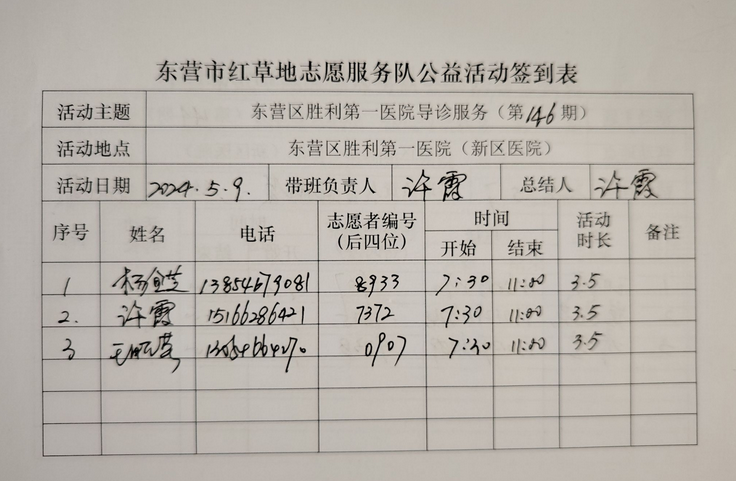 东营市红草地志愿服务队公益活动签到表
活动主题 东营区胜利第一医院导诊服务（第146期）
活动地点 东营区胜利第一医院（新区医院）
活动日期 2024.5.9. 带班负责人 许霞 总结人 许霞
序号 姓名 电话 志愿者编号（后四位） 时间 开始 结束 活动时长 备注
1 13854679081 8933 7:30 11:00 3.5
2. 许霞 15166286421 7372 7:30 11:00 3.5
3 0907 7:30 11:00 3.5